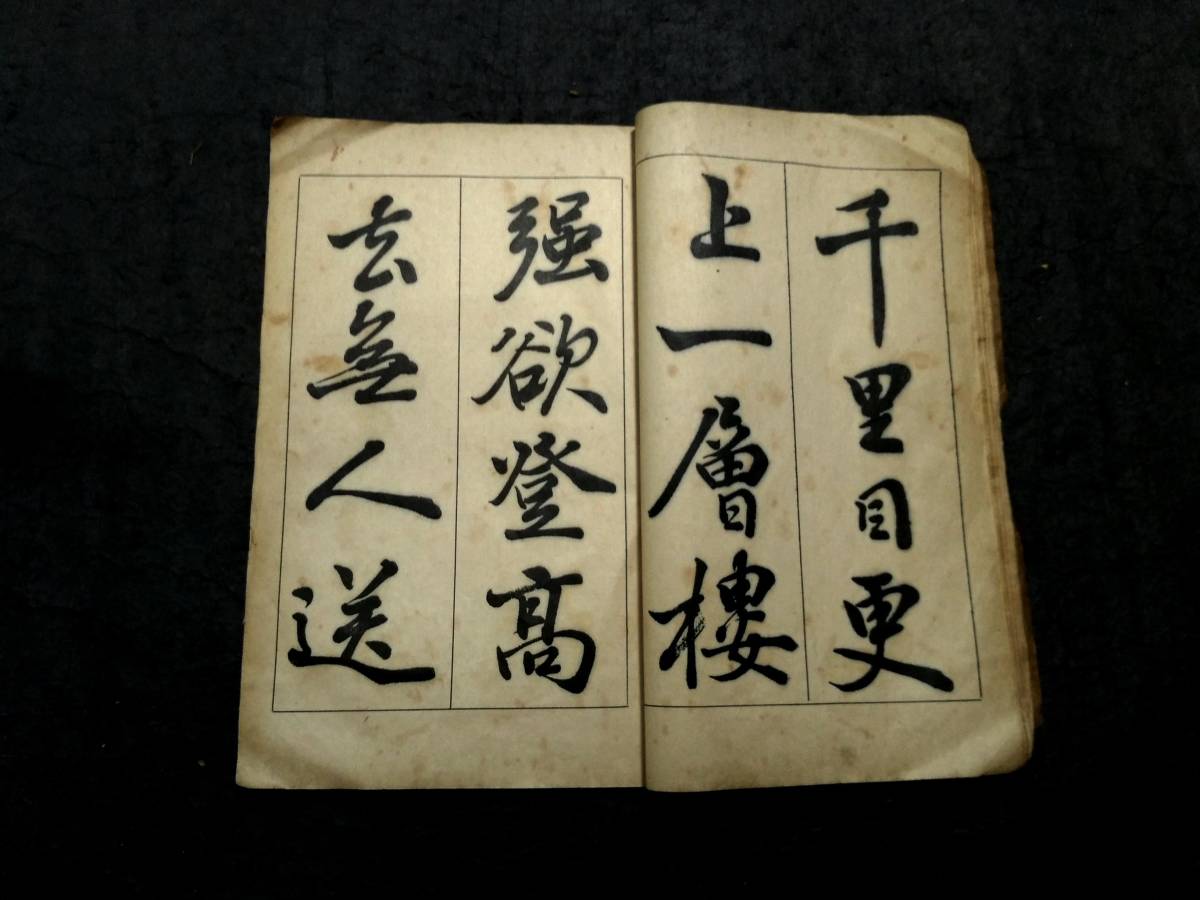 千里目更
上一層樓
强欲登高
去無人送